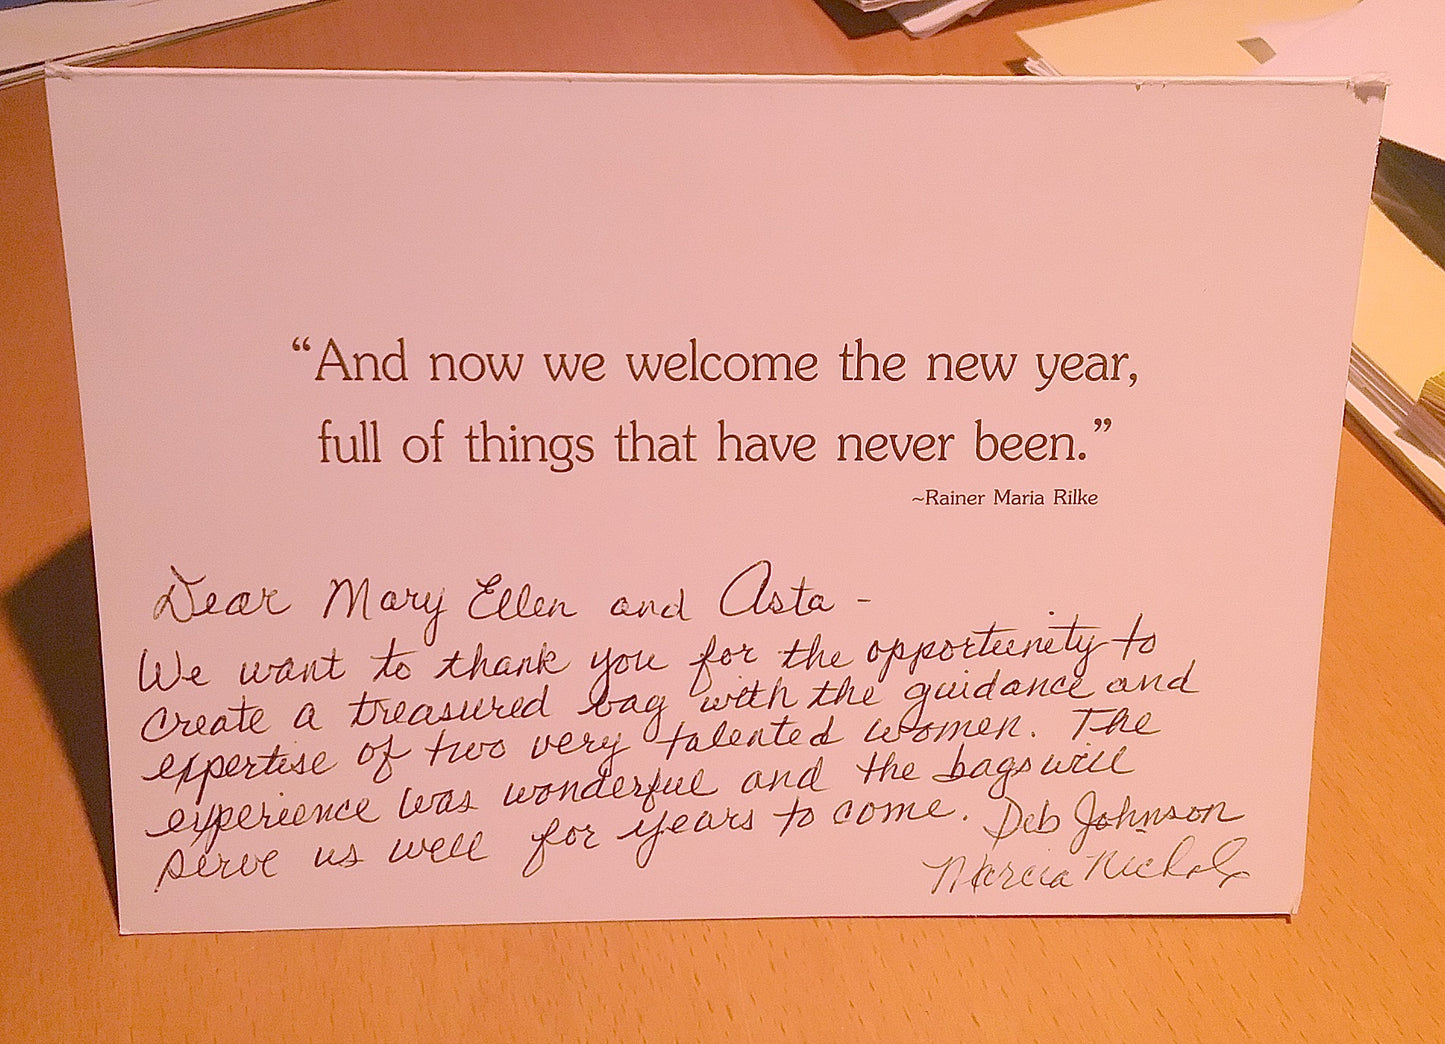 “And now we welcome the new year,
full of things that have never been.”
~Rainer Maria Rilke
Dear Mary Ellen and Asta -
We want to thank you for the opportunity to
create a treasured bag with the guidance and
expertise of two very talented women. The
experience was wonderful and the bags will
serve us well for years to come. Deb Johnson
Marcia Nichols